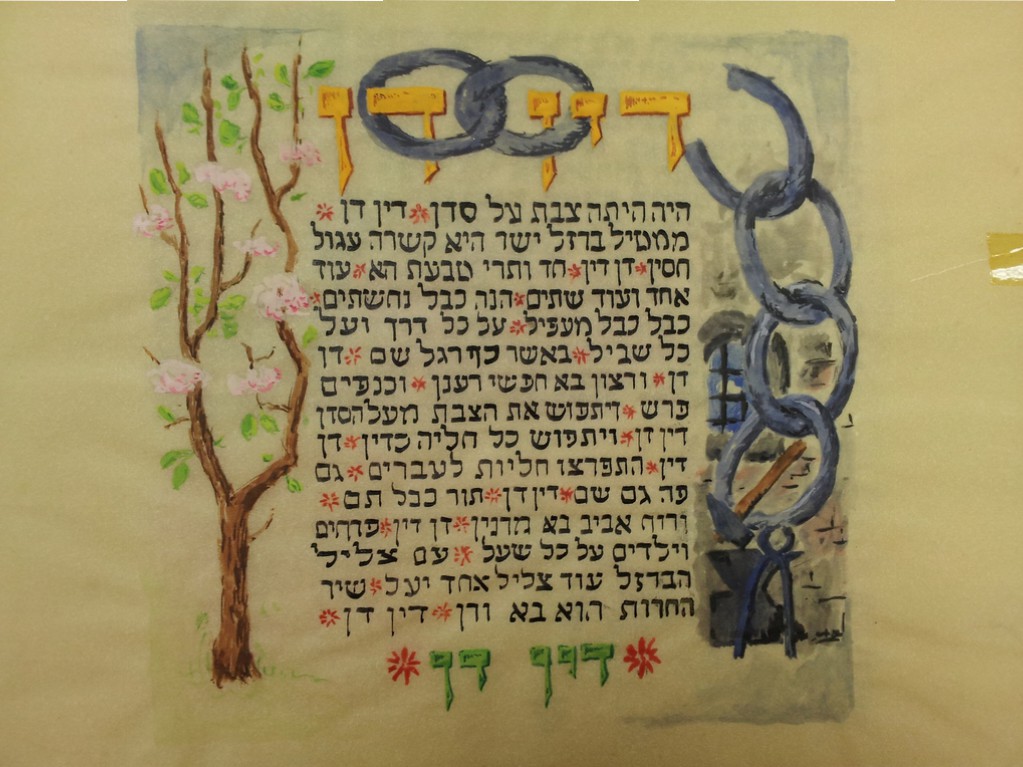 דין דן
היה היתה צבת על סדן * דין דן *
ממטיל ברזל ישר היא קשרה עגול
חסין * דן דין * חד ותרי טבעת הא * עוד
אחד ועוד שתים * הנה כבל נחשתים *
כבל כבל מעפיל * על כל דרך ועל
כל שביל * באשר כף רגל שם * דן
דן * ורצון בא חפשי רענן * וכנפים
פרש * ויתפוש את הצבת מעל הסדן
דין דן * ויתפוש כל חליה כדין * דן
דין * התפרצו חליות לעברים * גם
פה גם שם * דין דן * תור כבל תם *
ורוח אביב בא מרנין * דן דין * פרחים
וילדים על כל שעל * עם צליל
הברזל עוד צליל אחד יעל * שיר
החרות הוא בא ורן * דין דן *
* דין דן *